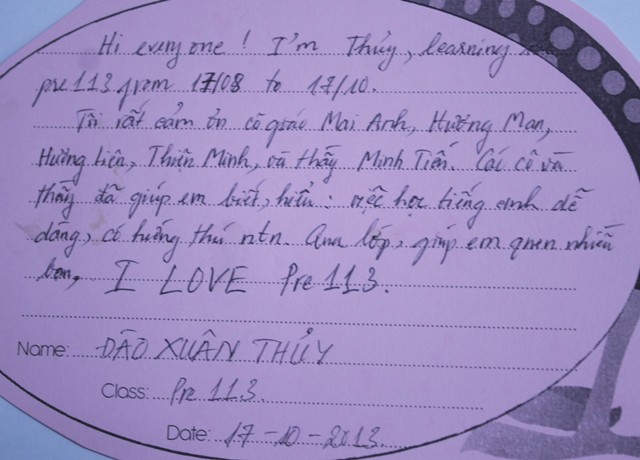 Hi everyone! I'm Thủy, learning
pre 113 from 17/08 to 17/10.
Tôi rất cảm ơn cô giáo Mai Anh, Hường Man,
Hường Liên, Thiện Minh, và thầy Minh Tiến. Các cô và
thầy đã giúp em biết, hiểu: việc học tiếng anh dễ
dàng, có hứng thú ntn. Qua lớp, giúp em quen nhiều
bạn, I LOVE Pre 113.
Name: ĐÀO XUÂN THỦY
Class: Pre 113
Date: 17-10-2013